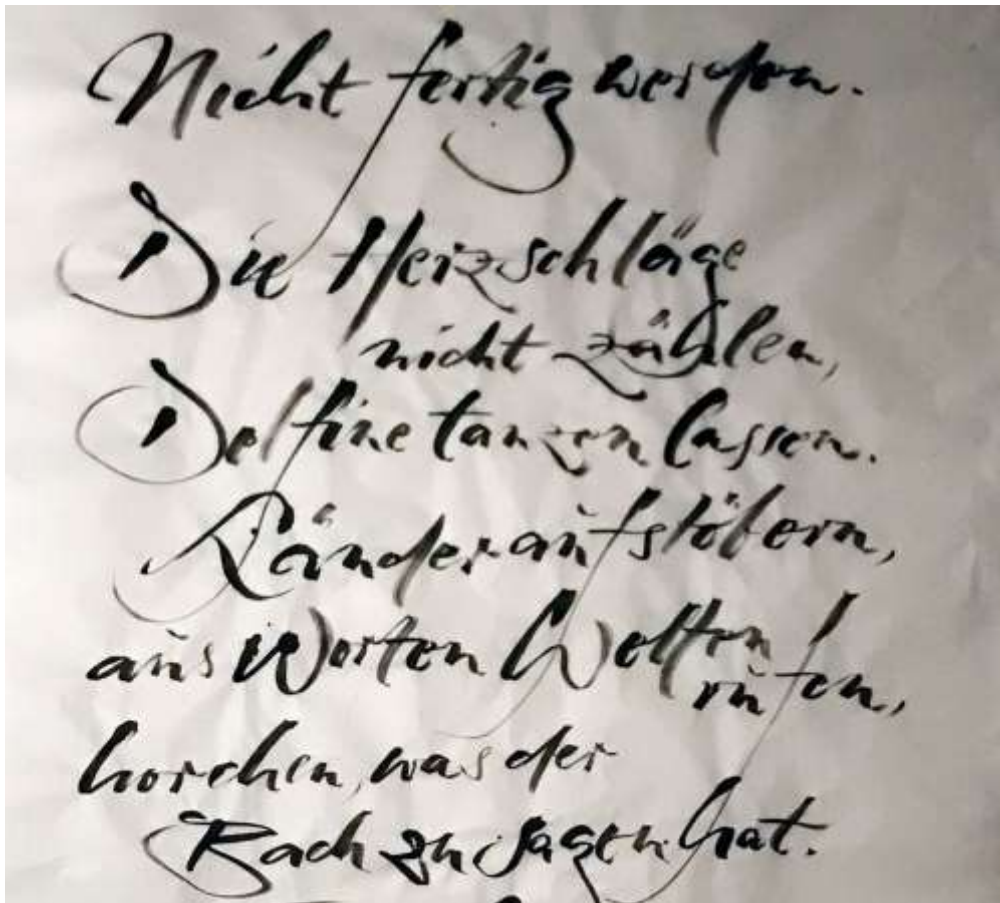 Nicht fertig werden.
Die Herzschläge
nicht zählen,
Delfine tanzen lassen.
Länder aufstöbern,
aus Worten Welten
rufen,
horchen, was der
Bach zu sagen hat.